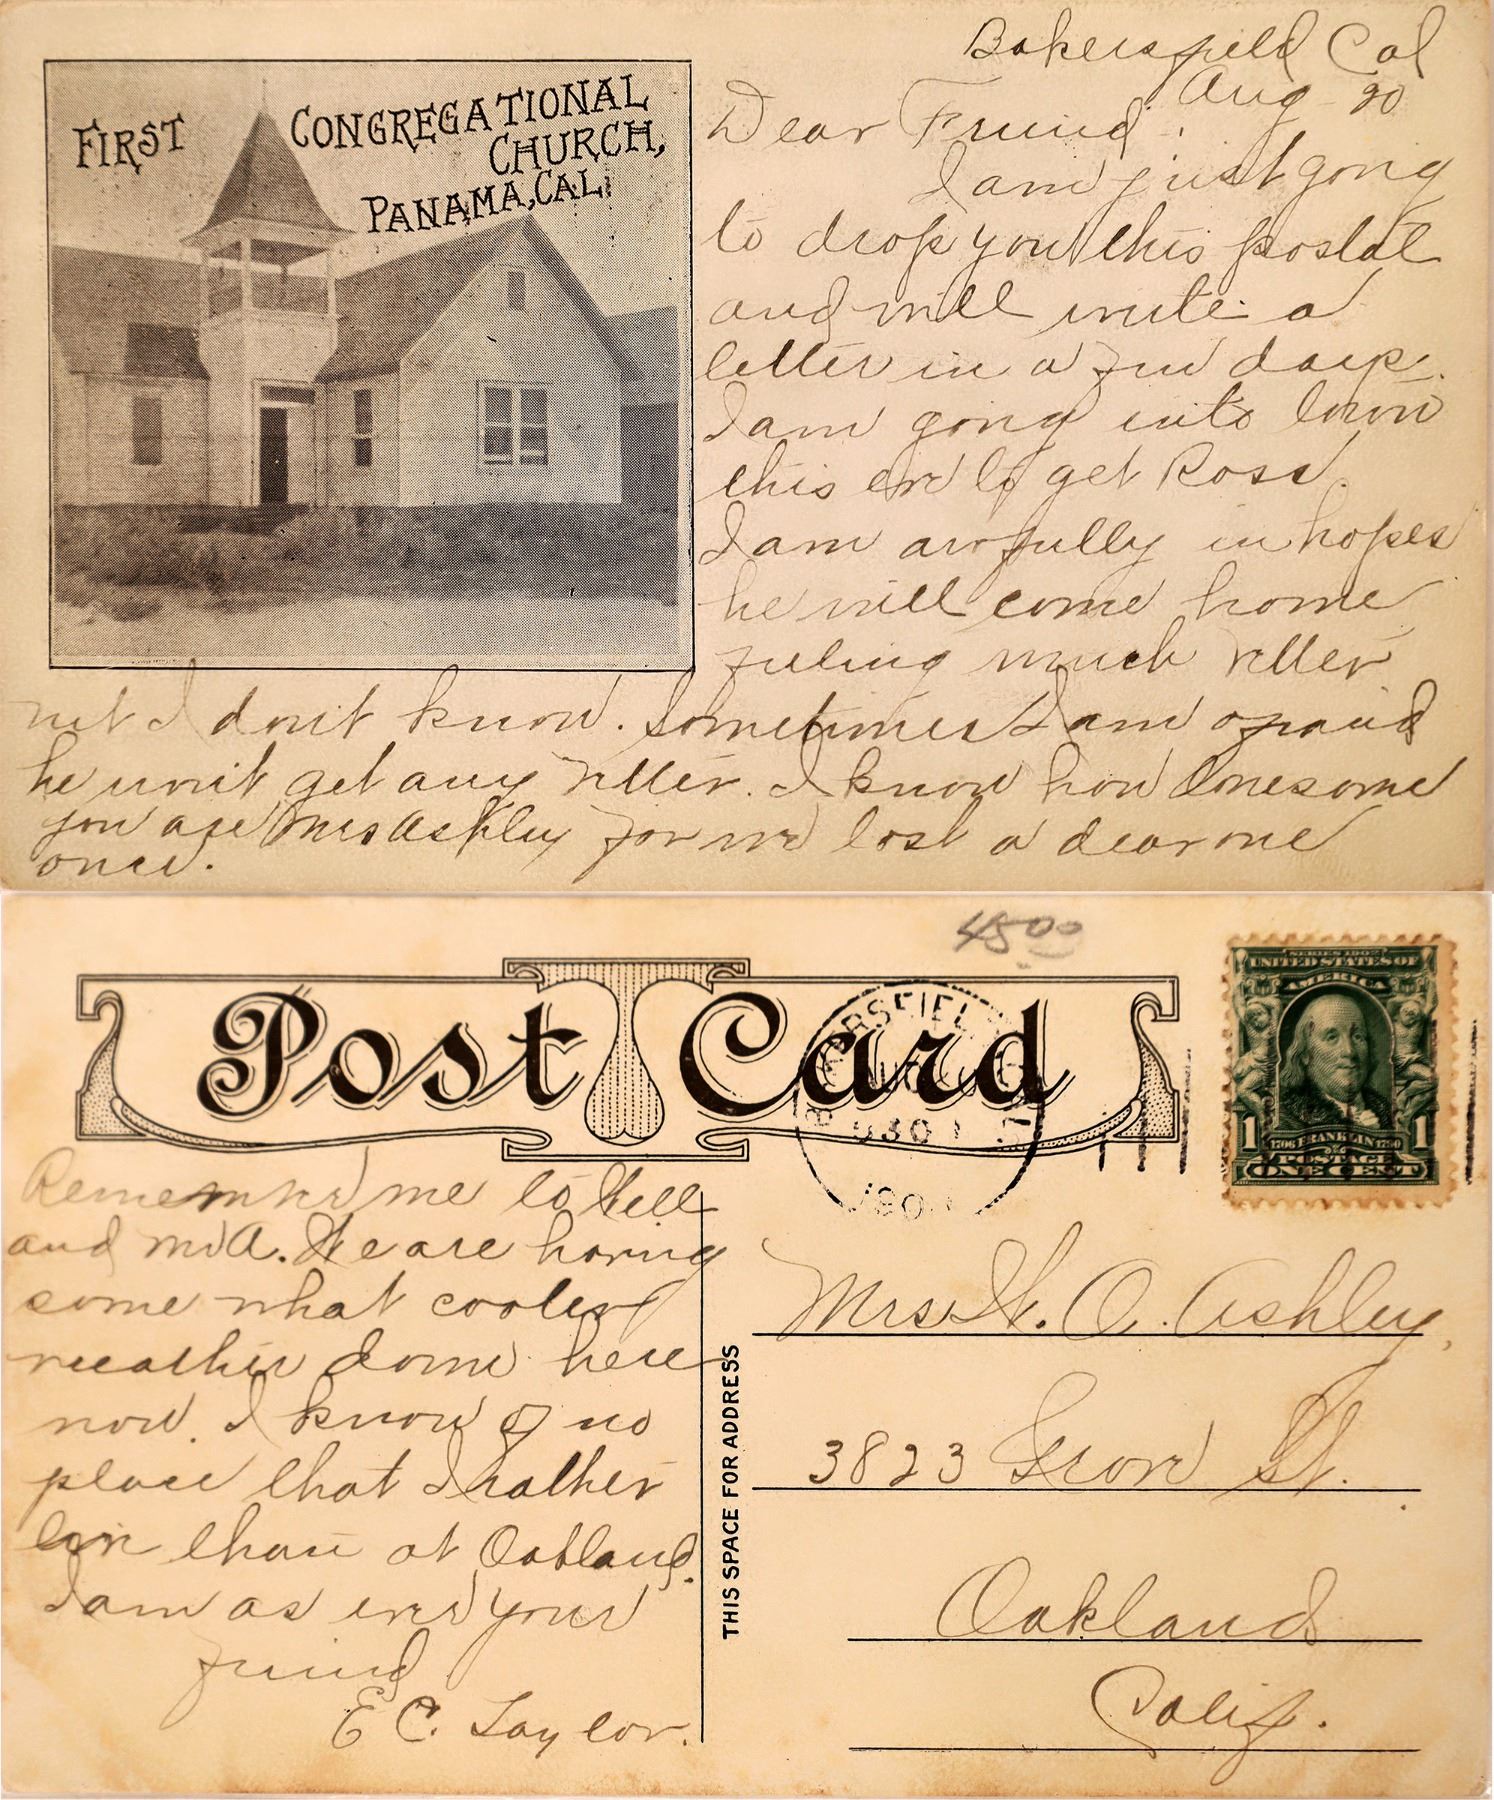 Bakersfield Cal
Aug 20
FIRST CONGREGATIONAL
CHURCH,
PANAMA, CAL.
Dear Friend.
I am just going
to drop you this postal
and will write a
letter in a few days.
I am going into town
this eve to get Ross.
I am awfully in hopes
he will come home
feeling much better
but I don't know. Sometimes I am afraid
he won't get any better. I know how lonesome
you are Mrs Ashley for we lost a dear one
once.
4500
Post Card
SERIES 1902
UNITED STATES OF
AMERICA
1 1706 FRANKLIN 1790 1
POSTAGE
ONE CENT
Remember me to Will
and Mr A. We are having
some what cooler
weather down here
now. I know of no
place that I rather
live than at Oakland.
I am as ever your
friend
E C. Taylor.
THIS SPACE FOR ADDRESS
Mrs W. O. Ashley,
3823 Grove St.
Oakland
Calif.